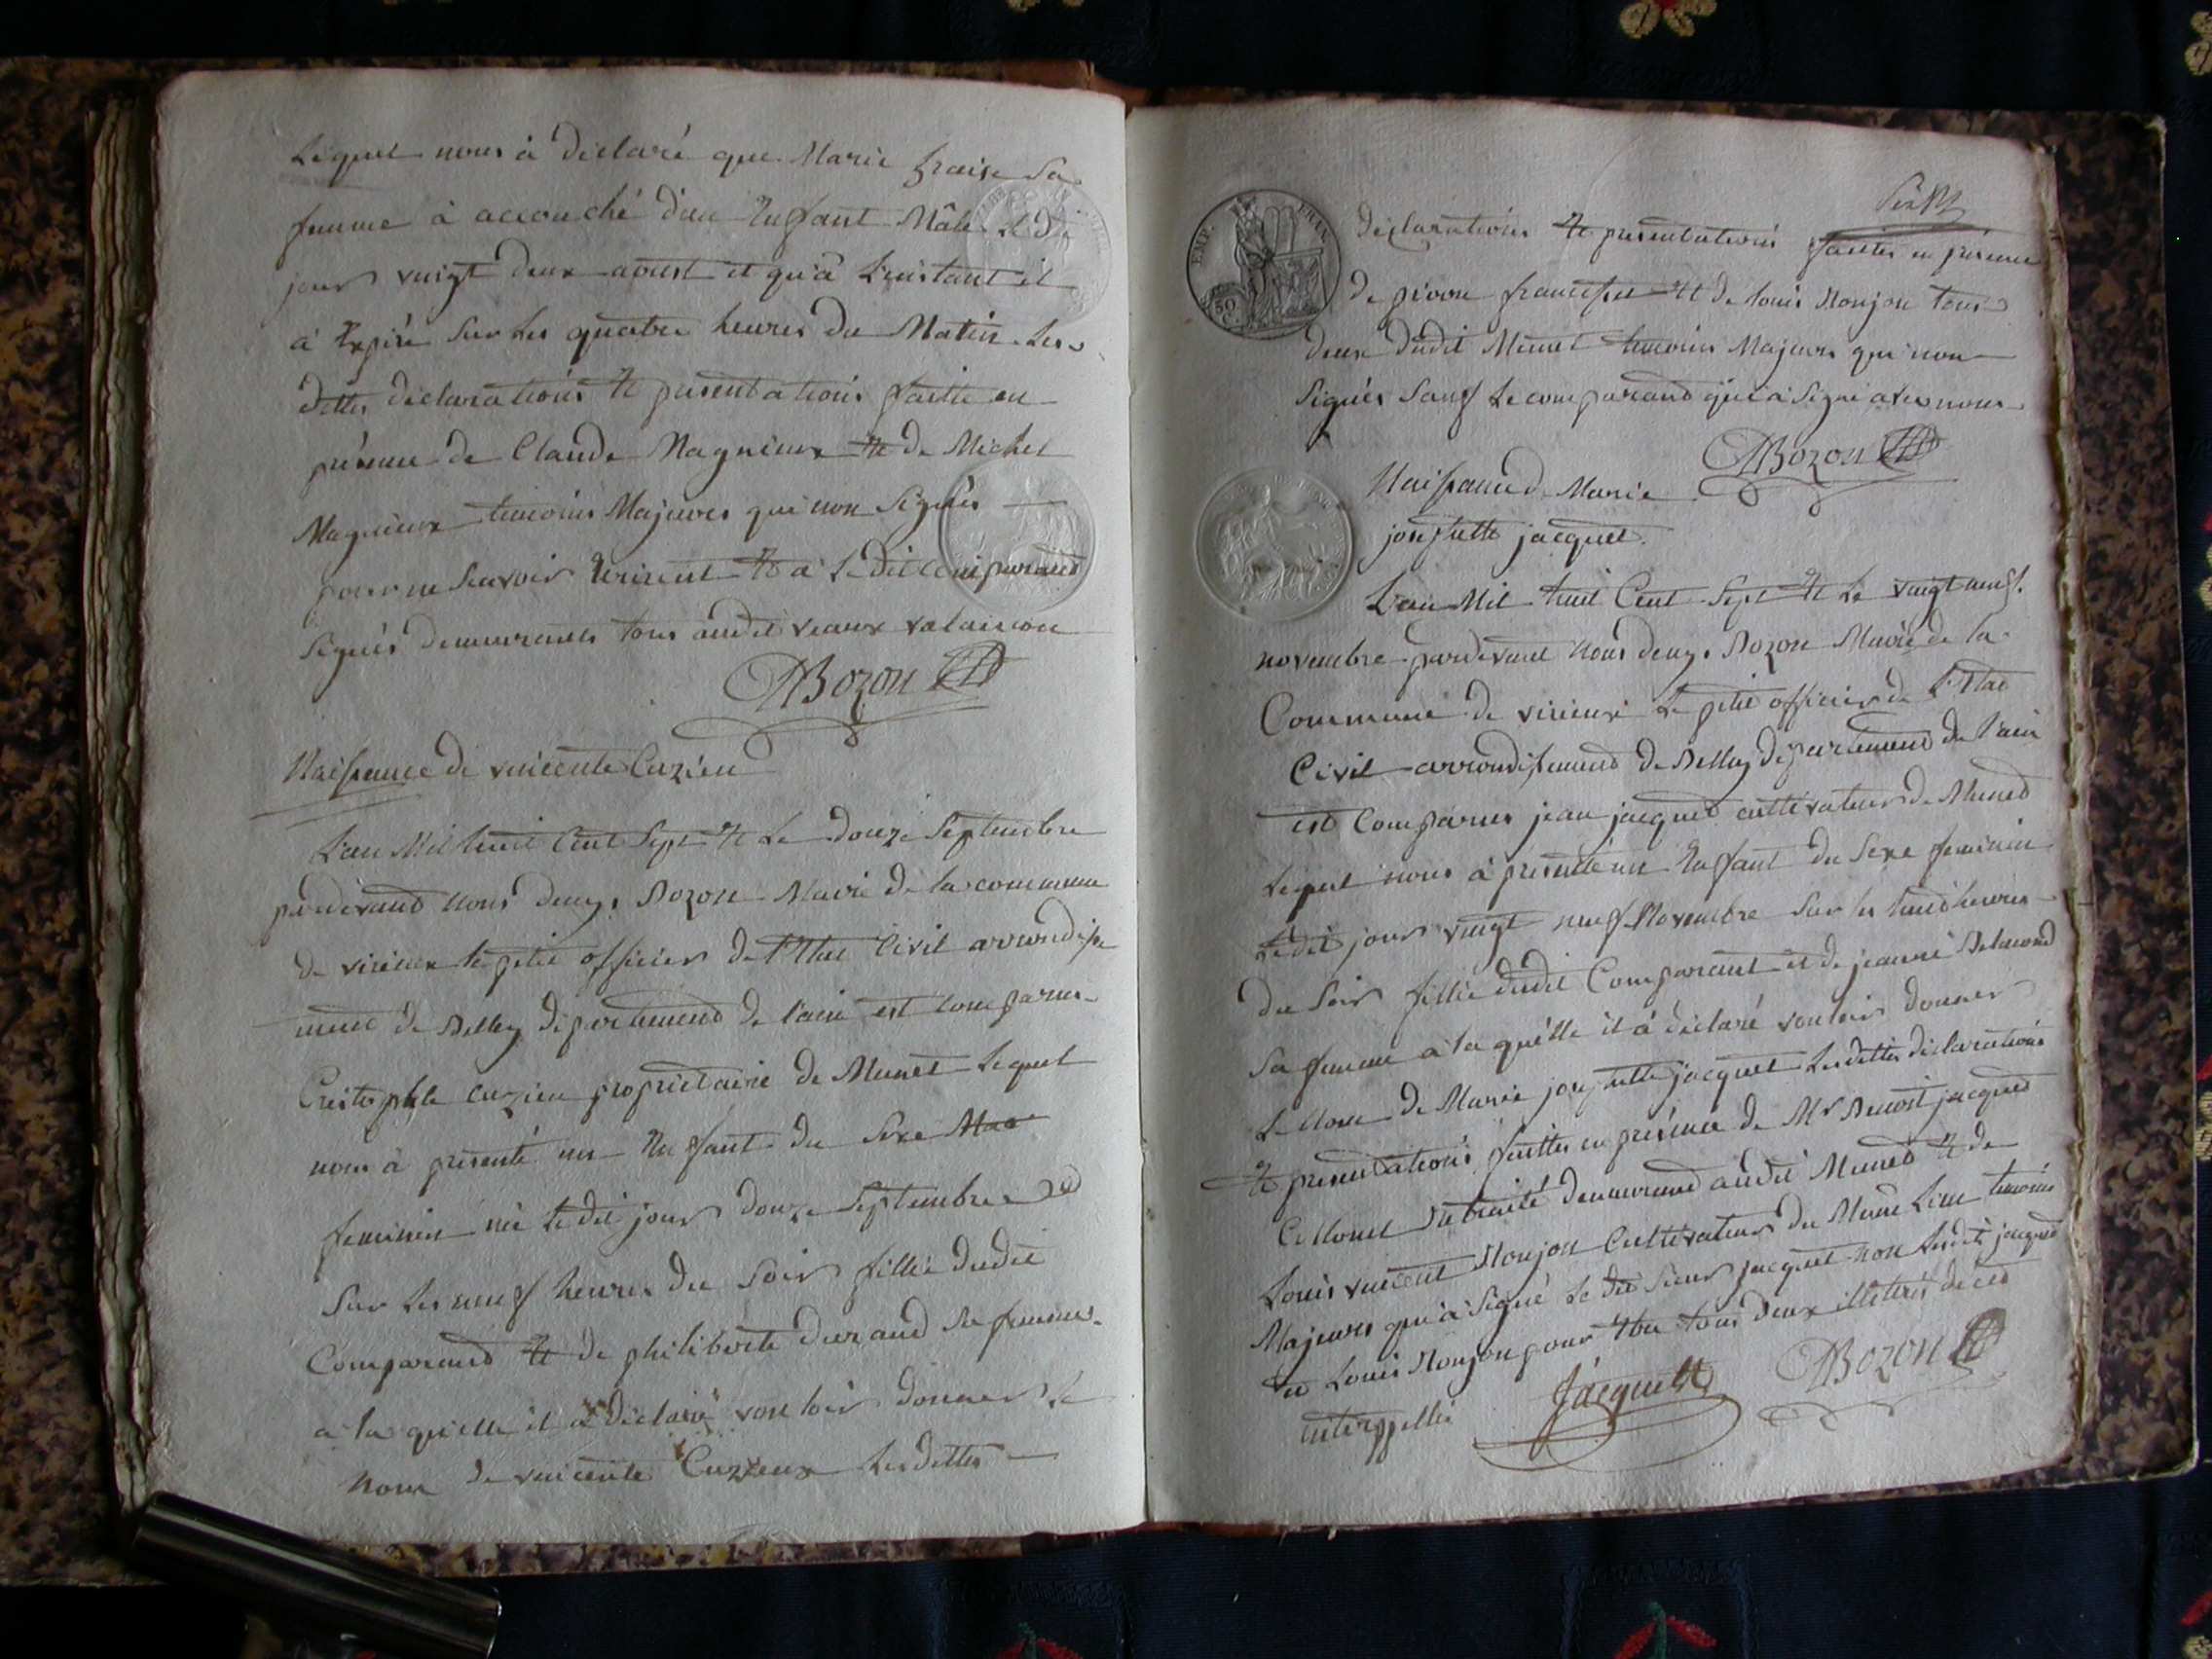 Lequel nous à déclaré que Marie fraise Sa
femme à accouché d'un Enfant Mâle Le dit
jour vingt deux aoust et qu'à L'instant il
à Expiré Sur Les quatre heures du Matin. Les
dittes déclarations Et presentations faitte en
présence de Claude Magnieux Et de Michel
Magnieux temoins Majeures qui non Signés
pour ne Scavoir Ecrirent Et a Le dit Comparand
Signés demeurants tous audit
DBozon
Naissance de vincente Cuzieu
L'an Mil huit Cent Sept Et Le douze Septembre
pardevand Nous denys Bozon Maire de la commune
de virieux le petit officier de l'Etat Civil arrondisse
ment de Belley département de l'ain est comparus
Cristophle cuzieu proprietaire de Munet Lequel
nous à présenté un Enfant du Sexe Mas
feminin né Le dit jour douze Septembre
Sur Les neuf heures du Soir fillie dudit
Comparand Et de philiberte durand Sa femme.
a la quelle il à déclaré vouloir donner Le
Nom de vincente Cuzieux Les dittes
EMP. FRAN.
50 C.
déclarations Et presentations faittes en présence
de pierre Et de Louis Monjon tous
deux dudit Munet temoins Majeurs qui non
Signés Sauf Le comparand qui à Signé avec nous
DBozon
Naissance de Marie
josephette jacquet.
L'an Mil huit Cent Sept Et Le vingt neuf
novembre pardevant Nous denys Bozon Maire de la
Commune de virieux Le petit officier de L'Etat
Civil arrondissement de Belley département de l'ain
est Comparus jean jacquet cultivateur de Munet
Lequel nous à présenté un Enfant du Sexe feminin
Le dit jour vingt neuf Novembre Sur les huit heures
du Soir fillie dudit Comparant et de jeanne
Sa femme a la quelle il à déclaré vouloir donner
Le Nom de Marie josephette jacquet Les dittes déclarations
Et presentations faittes en présence de Mr Benoit jacquet
Collonel Retraité demeurand audit Munet Et de
Louis vincent Monjon Cultivateur du Même Lieu temoins
Majeures qui à Signé Le dit Sieur jacquet non Ledit jacquet
Louis Monjon pour Etre tous deux illettrés de ces
interppellés
Jacquette
DBozon